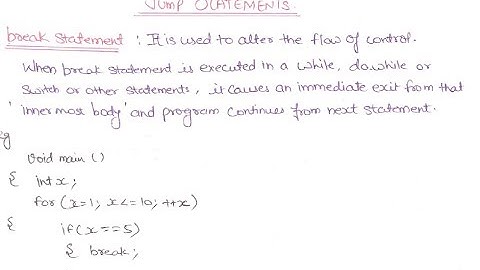 JUMP STATEMENTS.
break Statement : It is used to alter the flow of control.
When break statement is executed in a while, dowhile or
Switch or other statements, it causes an immediate exit from that
'innermost body' and program continues from next statement.
eg
void main ()
{ int x;
for (x=1; x<=10; ++x)
{ if (x==5)
{ break;